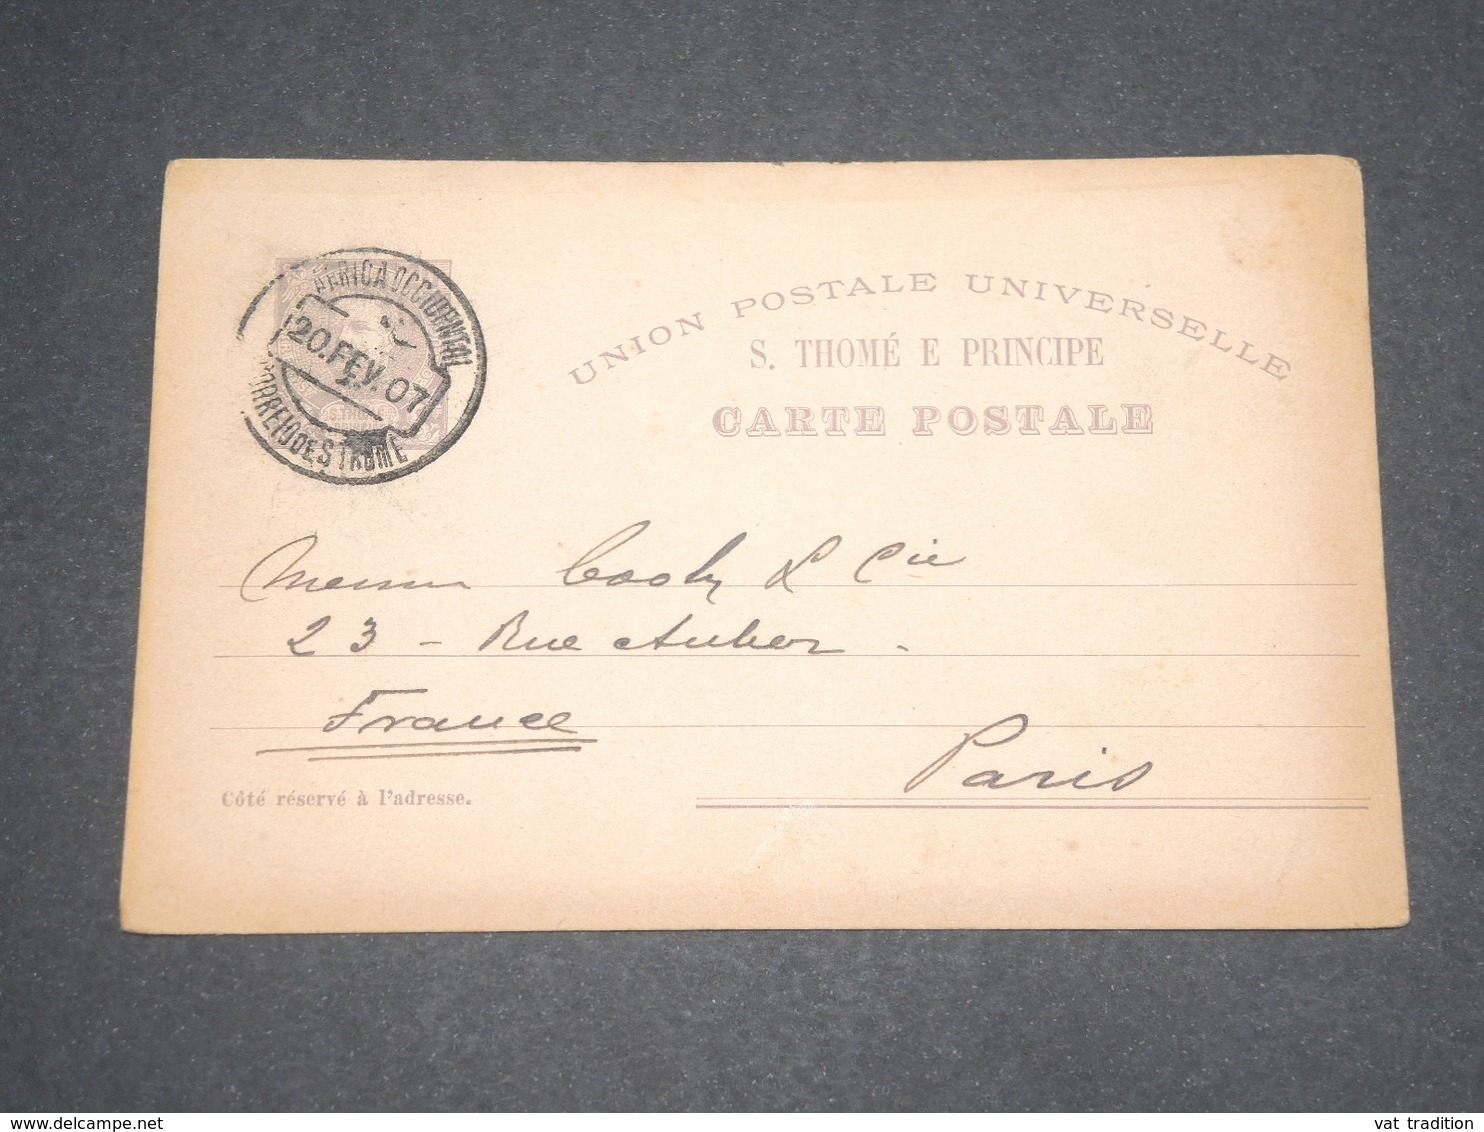 AFRICA OCCIDENTAL
20.FEV.07
CORREIO DE S THOME
UNION POSTALE UNIVERSELLE
S. THOMÉ E PRINCIPE
CARTE POSTALE
& Cie
23 - Rue Auber -
France
Paris
Côté réservé à l'adresse.
www.delcampe.net
vat tradition